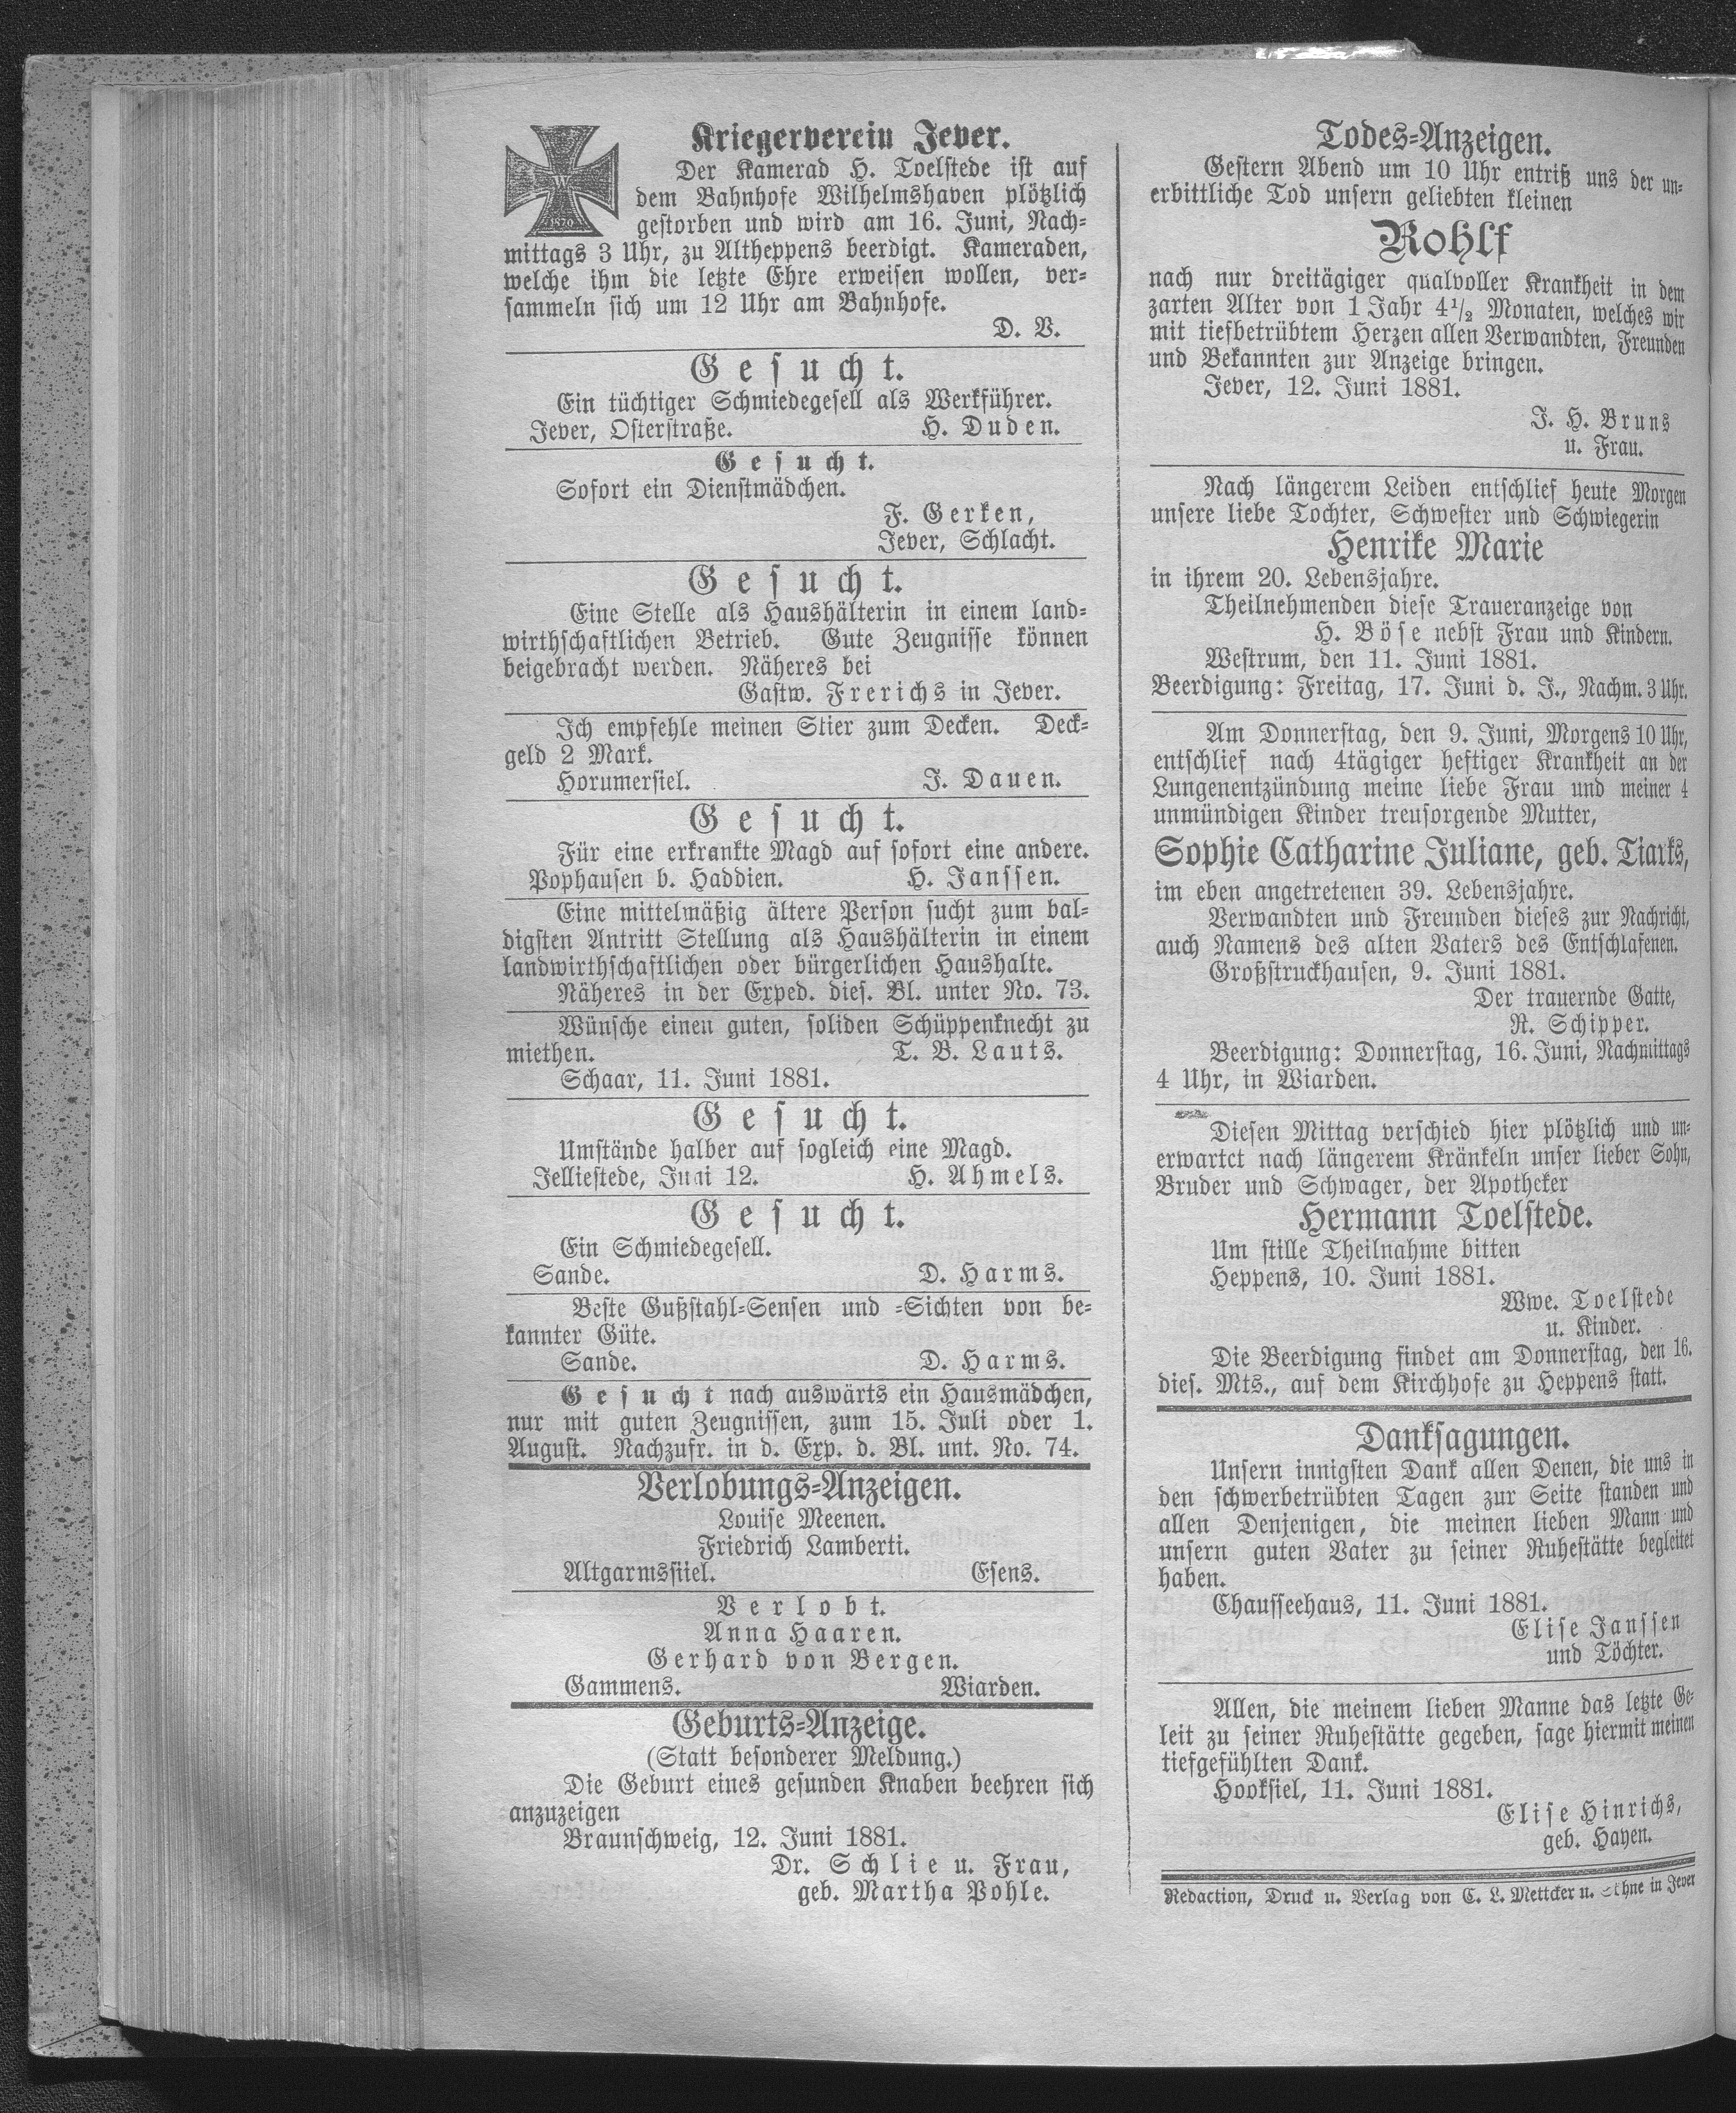 Kriegerverein Jever.
W
1870
Der Kamerad H. Toelstede ist auf
dem Bahnhofe Wilhelmshaven plötzlich
gestorben und wird am 16. Juni, Nach-
mittags 3 Uhr, zu Altheppens beerdigt. Kameraden,
welche ihm die letzte Ehre erweisen wollen, ver-
sammeln sich um 12 Uhr am Bahnhofe.
D. V.
Gesucht.
Ein tüchtiger Schmiedegesell als Werkführer.
Jever, Osterstraße. H. Duden.
Gesucht.
Sofort ein Dienstmädchen.
F. Gerken,
Jever, Schlacht.
Gesucht.
Eine Stelle als Haushälterin in einem land-
wirthschaftlichen Betrieb. Gute Zeugnisse können
beigebracht werden. Näheres bei
Gastw. Frerichs in Jever.
Ich empfehle meinen Stier zum Decken. Deck-
geld 2 Mark.
Horumersiel. J. Dauen.
Gesucht.
Für eine erkrankte Magd auf sofort eine andere.
Pophausen b. Haddien. H. Janssen.
Eine mittelmäßig ältere Person sucht zum bal-
digsten Antritt Stellung als Haushälterin in einem
landwirthschaftlichen oder bürgerlichen Haushalte.
Näheres in der Exped. dies. Bl. unter No. 73.
Wünsche einen guten, soliden Schüppenknecht zu
miethen. T. B. Lauts.
Schaar, 11. Juni 1881.
Gesucht.
Umstände halber auf sogleich eine Magd.
Jelliestede, Juni 12. H. Ahmels.
Gesucht.
Ein Schmiedegesell.
Sande. D. Harms.
Beste Gußstahl-Sensen und -Sichten von be-
kannter Güte.
Sande. D. Harms.
Gesucht nach auswärts ein Hausmädchen,
nur mit guten Zeugnissen, zum 15. Juli oder 1.
August. Nachzufr. in d. Exp. d. Bl. unt. No. 74.
Verlobungs-Anzeigen.
Louise Meenen.
Friedrich Lamberti.
Altgarmssiel. Esens.
Verlobt.
Anna Haaren.
Gerhard von Bergen.
Gammens. Wiarden.
Geburts-Anzeige.
(Statt besonderer Meldung.)
Die Geburt eines gesunden Knaben beehren sich
anzuzeigen
Braunschweig, 12. Juni 1881.
Dr. Schlie u. Frau,
geb. Martha Pohle.
Todes-Anzeigen.
Gestern Abend um 10 Uhr entriß uns der un-
erbittliche Tod unsern geliebten kleinen
Rohlf
nach nur dreitägiger qualvoller Krankheit in dem
zarten Alter von 1 Jahr 4½ Monaten, welches wir
mit tiefbetrübtem Herzen allen Verwandten, Freunden
und Bekannten zur Anzeige bringen.
Jever, 12. Juni 1881.
J. H. Bruns
u. Frau.
Nach längerem Leiden entschlief heute Morgen
unsere liebe Tochter, Schwester und Schwiegerin
Henrike Marie
in ihrem 20. Lebensjahre.
Theilnehmenden diese Traueranzeige von
H. Böse nebst Frau und Kindern.
Westrum, den 11. Juni 1881.
Beerdigung: Freitag, 17. Juni d. J., Nachm. 3 Uhr.
Am Donnerstag, den 9. Juni, Morgens 10 Uhr,
entschlief nach 4tägiger heftiger Krankheit an der
Lungenentzündung meine liebe Frau und meiner 4
unmündigen Kinder treusorgende Mutter,
Sophie Catharine Juliane, geb. Tiarks,
im eben angetretenen 39. Lebensjahre.
Verwandten und Freunden dieses zur Nachricht,
auch Namens des alten Vaters des Entschlafenen.
Großstruckhausen, 9. Juni 1881.
Der trauernde Gatte,
R. Schipper.
Beerdigung: Donnerstag, 16. Juni, Nachmittags
4 Uhr, in Wiarden.
Diesen Mittag verschied hier plötzlich und un-
erwartet nach längerem Kränkeln unser lieber Sohn,
Bruder und Schwager, der Apotheker
Hermann Toelstede.
Um stille Theilnahme bitten
Heppens, 10. Juni 1881.
Wwe. Toelstede
u. Kinder.
Die Beerdigung findet am Donnerstag, den 16.
dies. Mts., auf dem Kirchhofe zu Heppens statt.
Danksagungen.
Unsern innigsten Dank allen Denen, die uns in
den schwerbetrübten Tagen zur Seite standen und
allen Denjenigen, die meinen lieben Mann und
unsern guten Vater zu seiner Ruhestätte begleitet
haben.
Chausseehaus, 11. Juni 1881.
Elise Janssen
und Töchter.
Allen, die meinem lieben Manne das letzte Ge-
leit zu seiner Ruhestätte gegeben, sage hiermit meinen
tiefgefühlten Dank.
Hooksiel, 11. Juni 1881.
Elise Hinrichs,
geb. Hayen.
Redaction, Druck u. Verlag von C. L. Mettcker u. Söhne in Jever